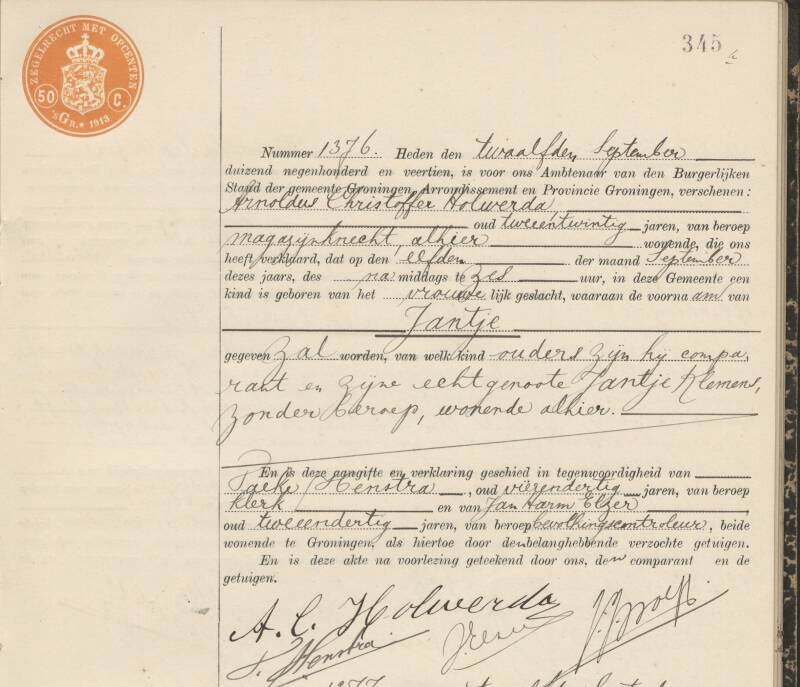 ZEGELRECHT MET OPCENTEN
50 C.
'sGR. * 1913
345
Nummer 1376. Heden den twaalfden September
duizend negenhonderd en veertien, is voor ons Ambtenaar van den Burgerlijken
Stand der gemeente Groningen, Arrondissement en Provincie Groningen, verschenen:
Arnoldus Christoffer Holwerda,
oud tweeentwintig jaren, van beroep
magazijnknecht, alhier wonende, die ons
heeft verklaard, dat op den elfden der maand September
dezes jaars, des na middags te zes uur, in deze Gemeente een
kind is geboren van het vrouwe lijk geslacht, waaraan de voorna am van
Jantje
gegeven zal worden, van welk kind ouders zijn hij compa,
rant en zijne echtgenoote Jantje Klemens,
zonder beroep, wonende alhier.
En is deze aangifte en verklaring geschied in tegenwoordigheid van
Paeke Henstra, oud vierendertig jaren, van beroep
klerk en van Jan Harm Elzer
oud tweeendertig jaren, van beroep bevolkingscontroleur, beide
wonende te Groningen, als hiertoe door den belanghebbende verzochte getuigen.
En is deze akte na voorlezing geteekend door ons, den comparant en de
getuigen.
A. C. Holwerda
P. Henstra
1377